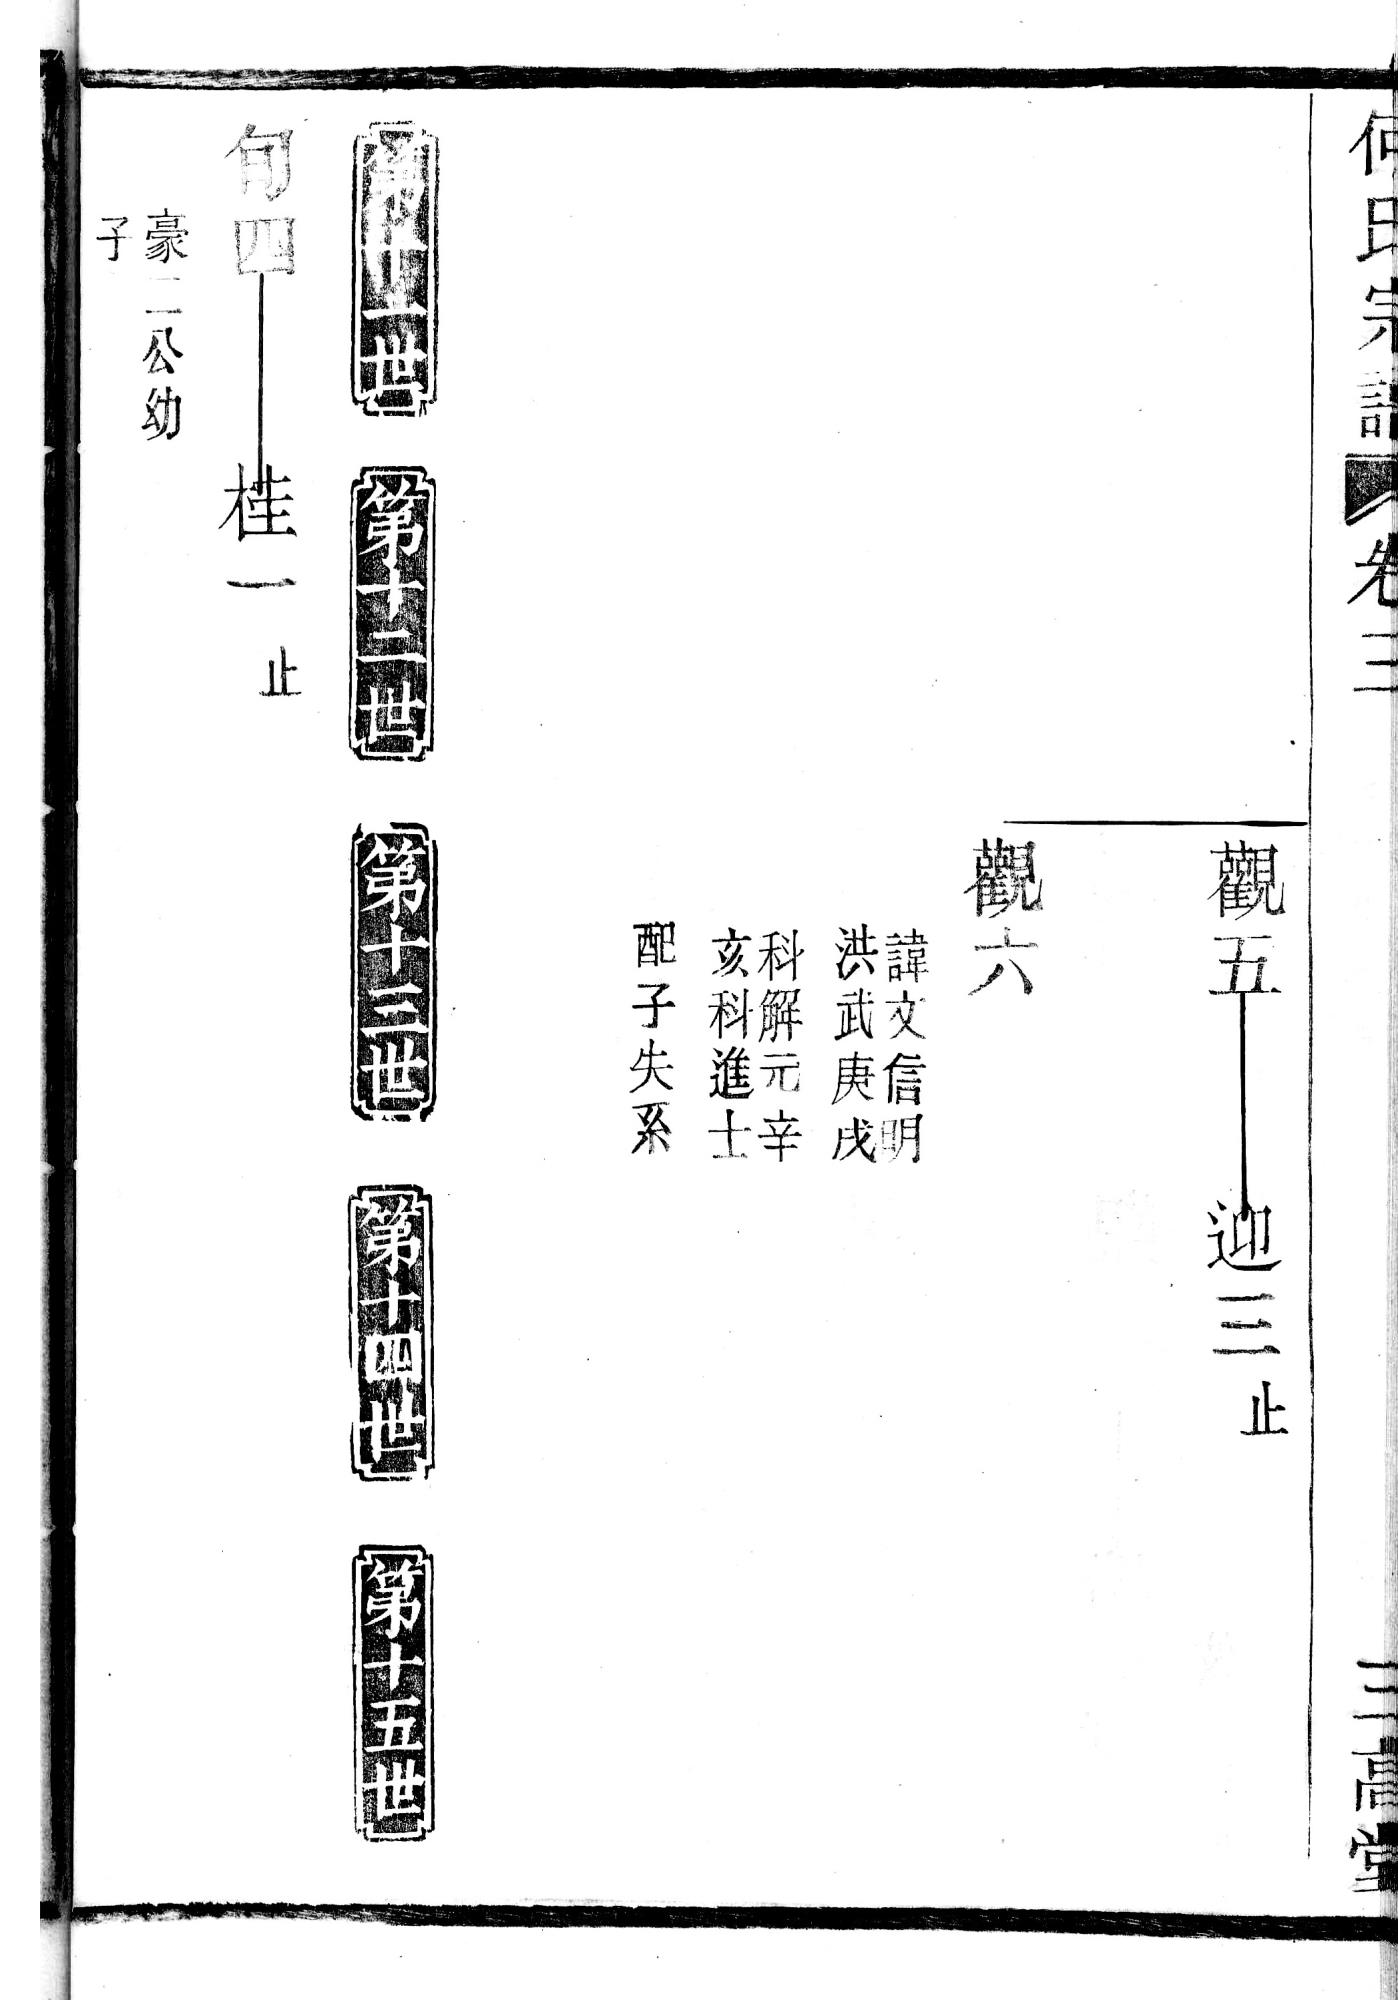 何氏宗譜 卷三 三高堂
觀五 迎三 止
觀六
諱文信明
洪武庚戌
科解元辛
亥科進士
配子失系
第十一世
第十二世
第十三世
第十四世
第十五世
旬四 桂一 止
豪二公幼
子